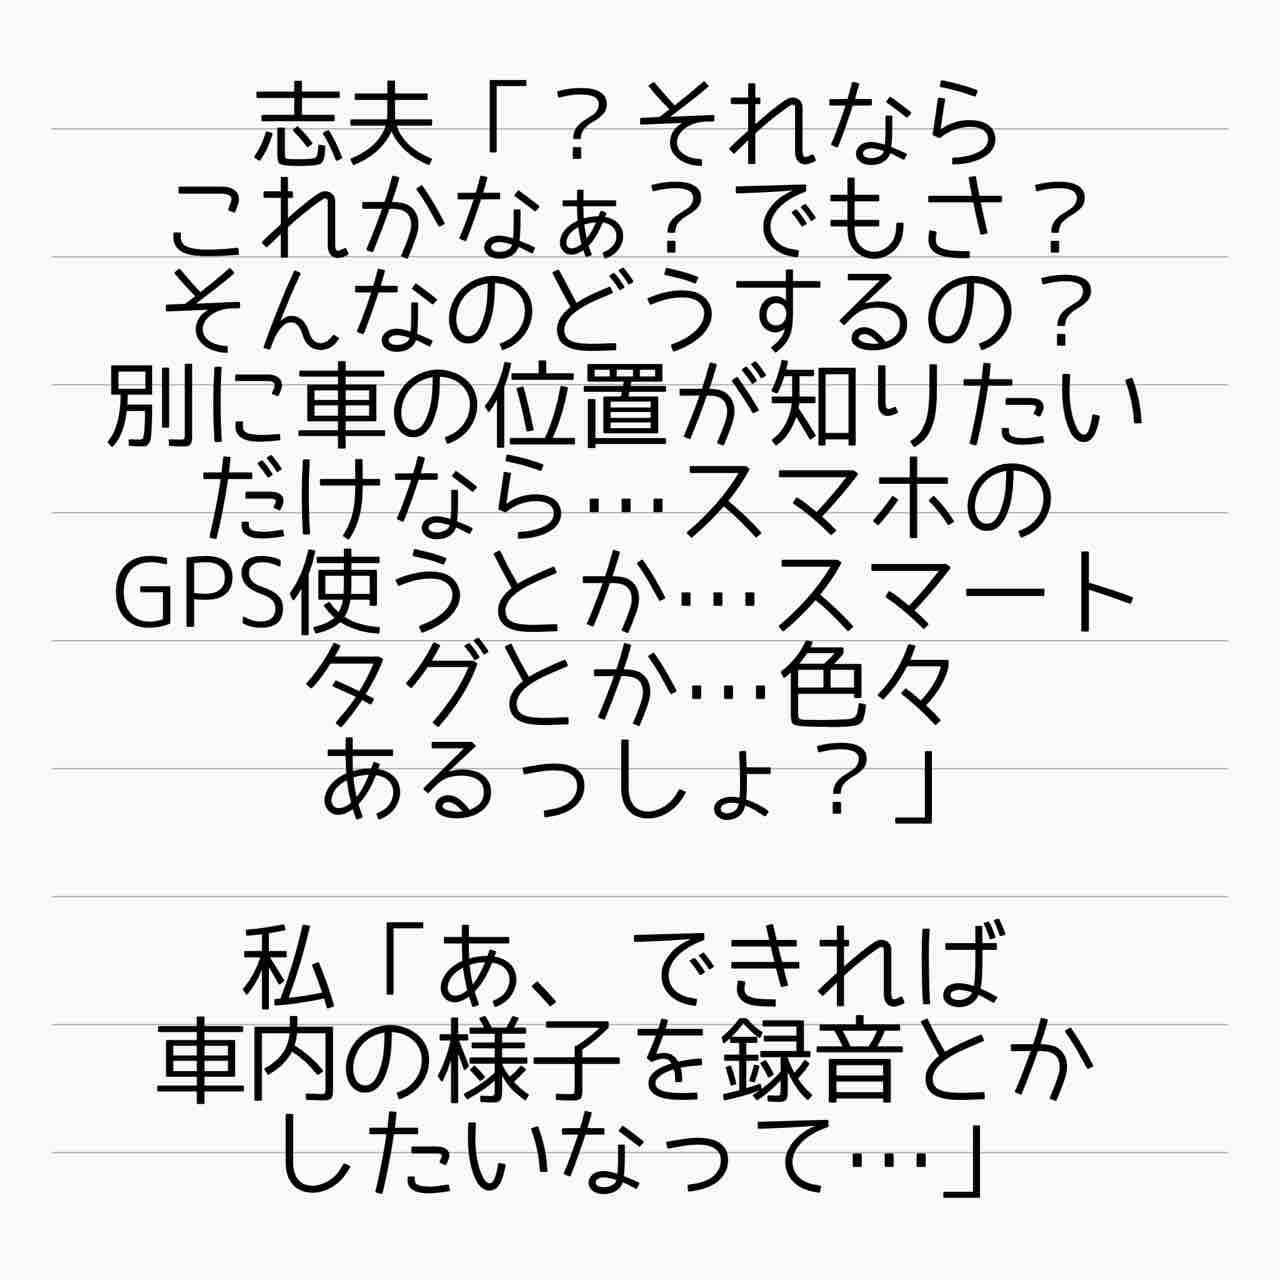 志夫「？それなら
これかなぁ？でもさ？
そんなのどうするの？
別に車の位置が知りたい
だけなら…スマホの
GPS使うとか…スマート
タグとか…色々
あるっしょ？」
私「あ、できれば
車内の様子を録音とか
したいなって…」